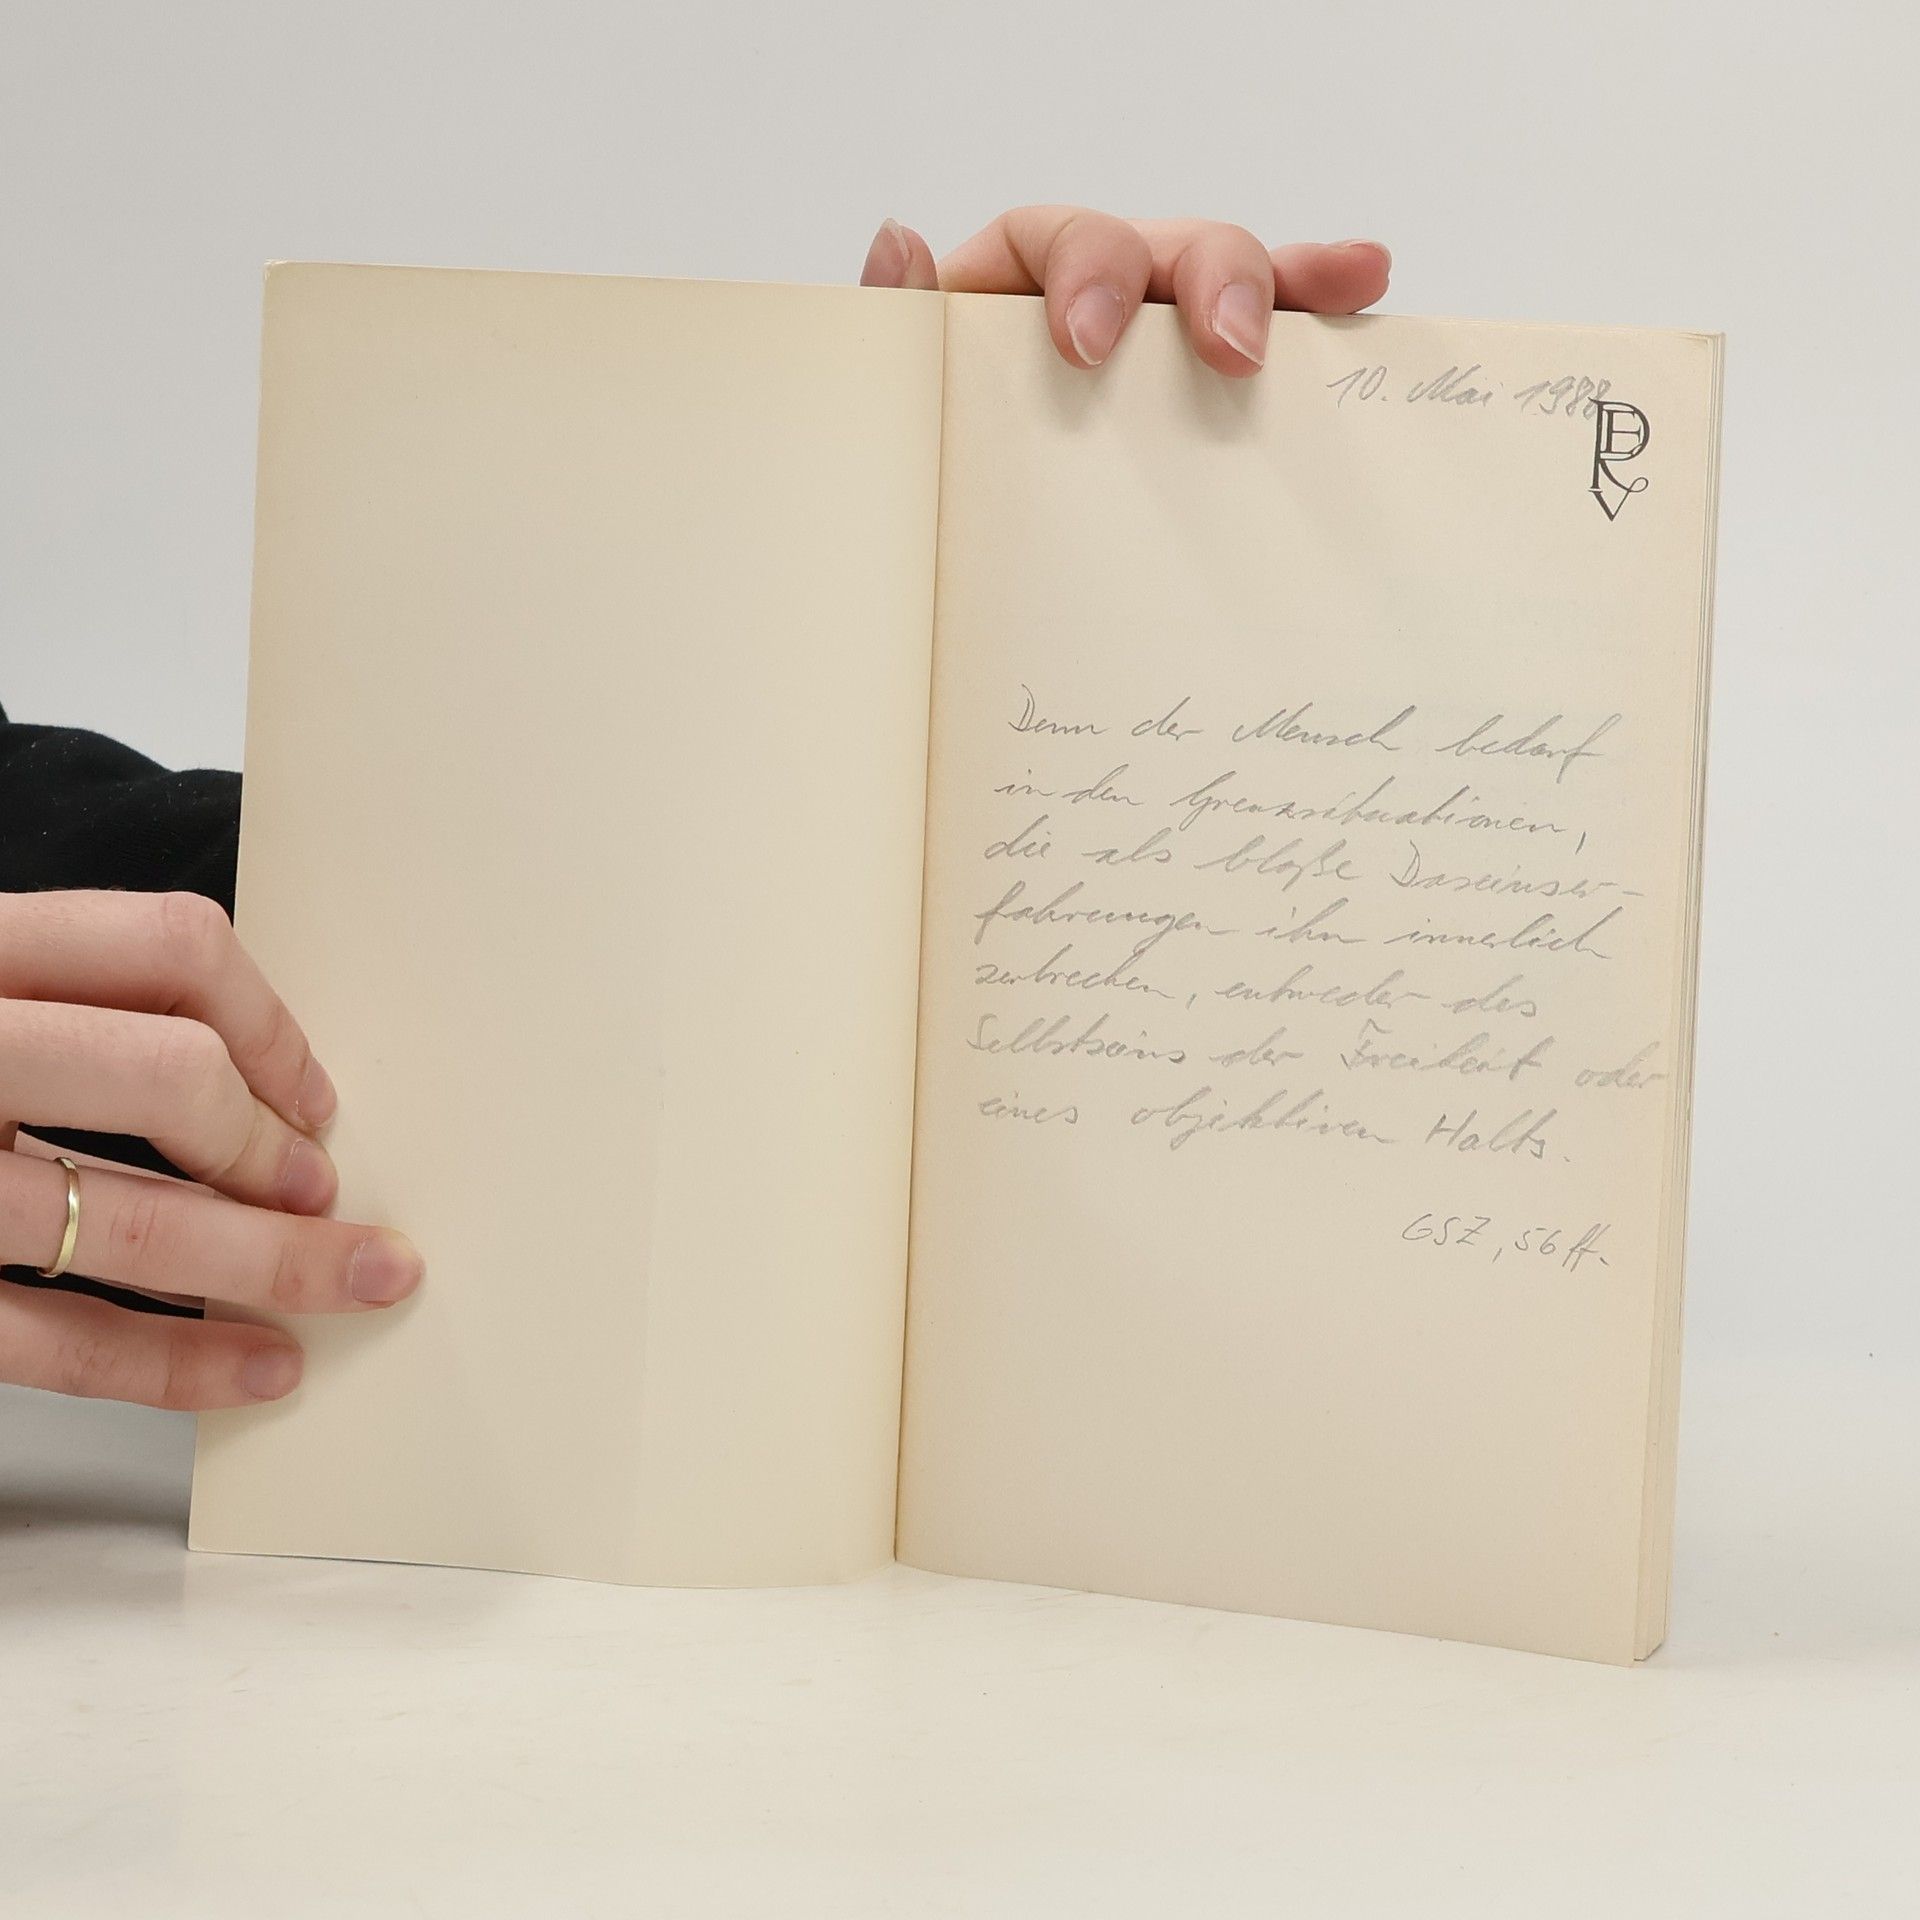 10. Mai 1988
Denn der Mensch bedarf
in den Grenzsituationen,
die als bloße Daseinser-
fahrungen ihn innerlich
zerbrechen, entweder des
Selbstseins der Freiheit oder
eines objektiven Halts.
GSZ, 56 ff.